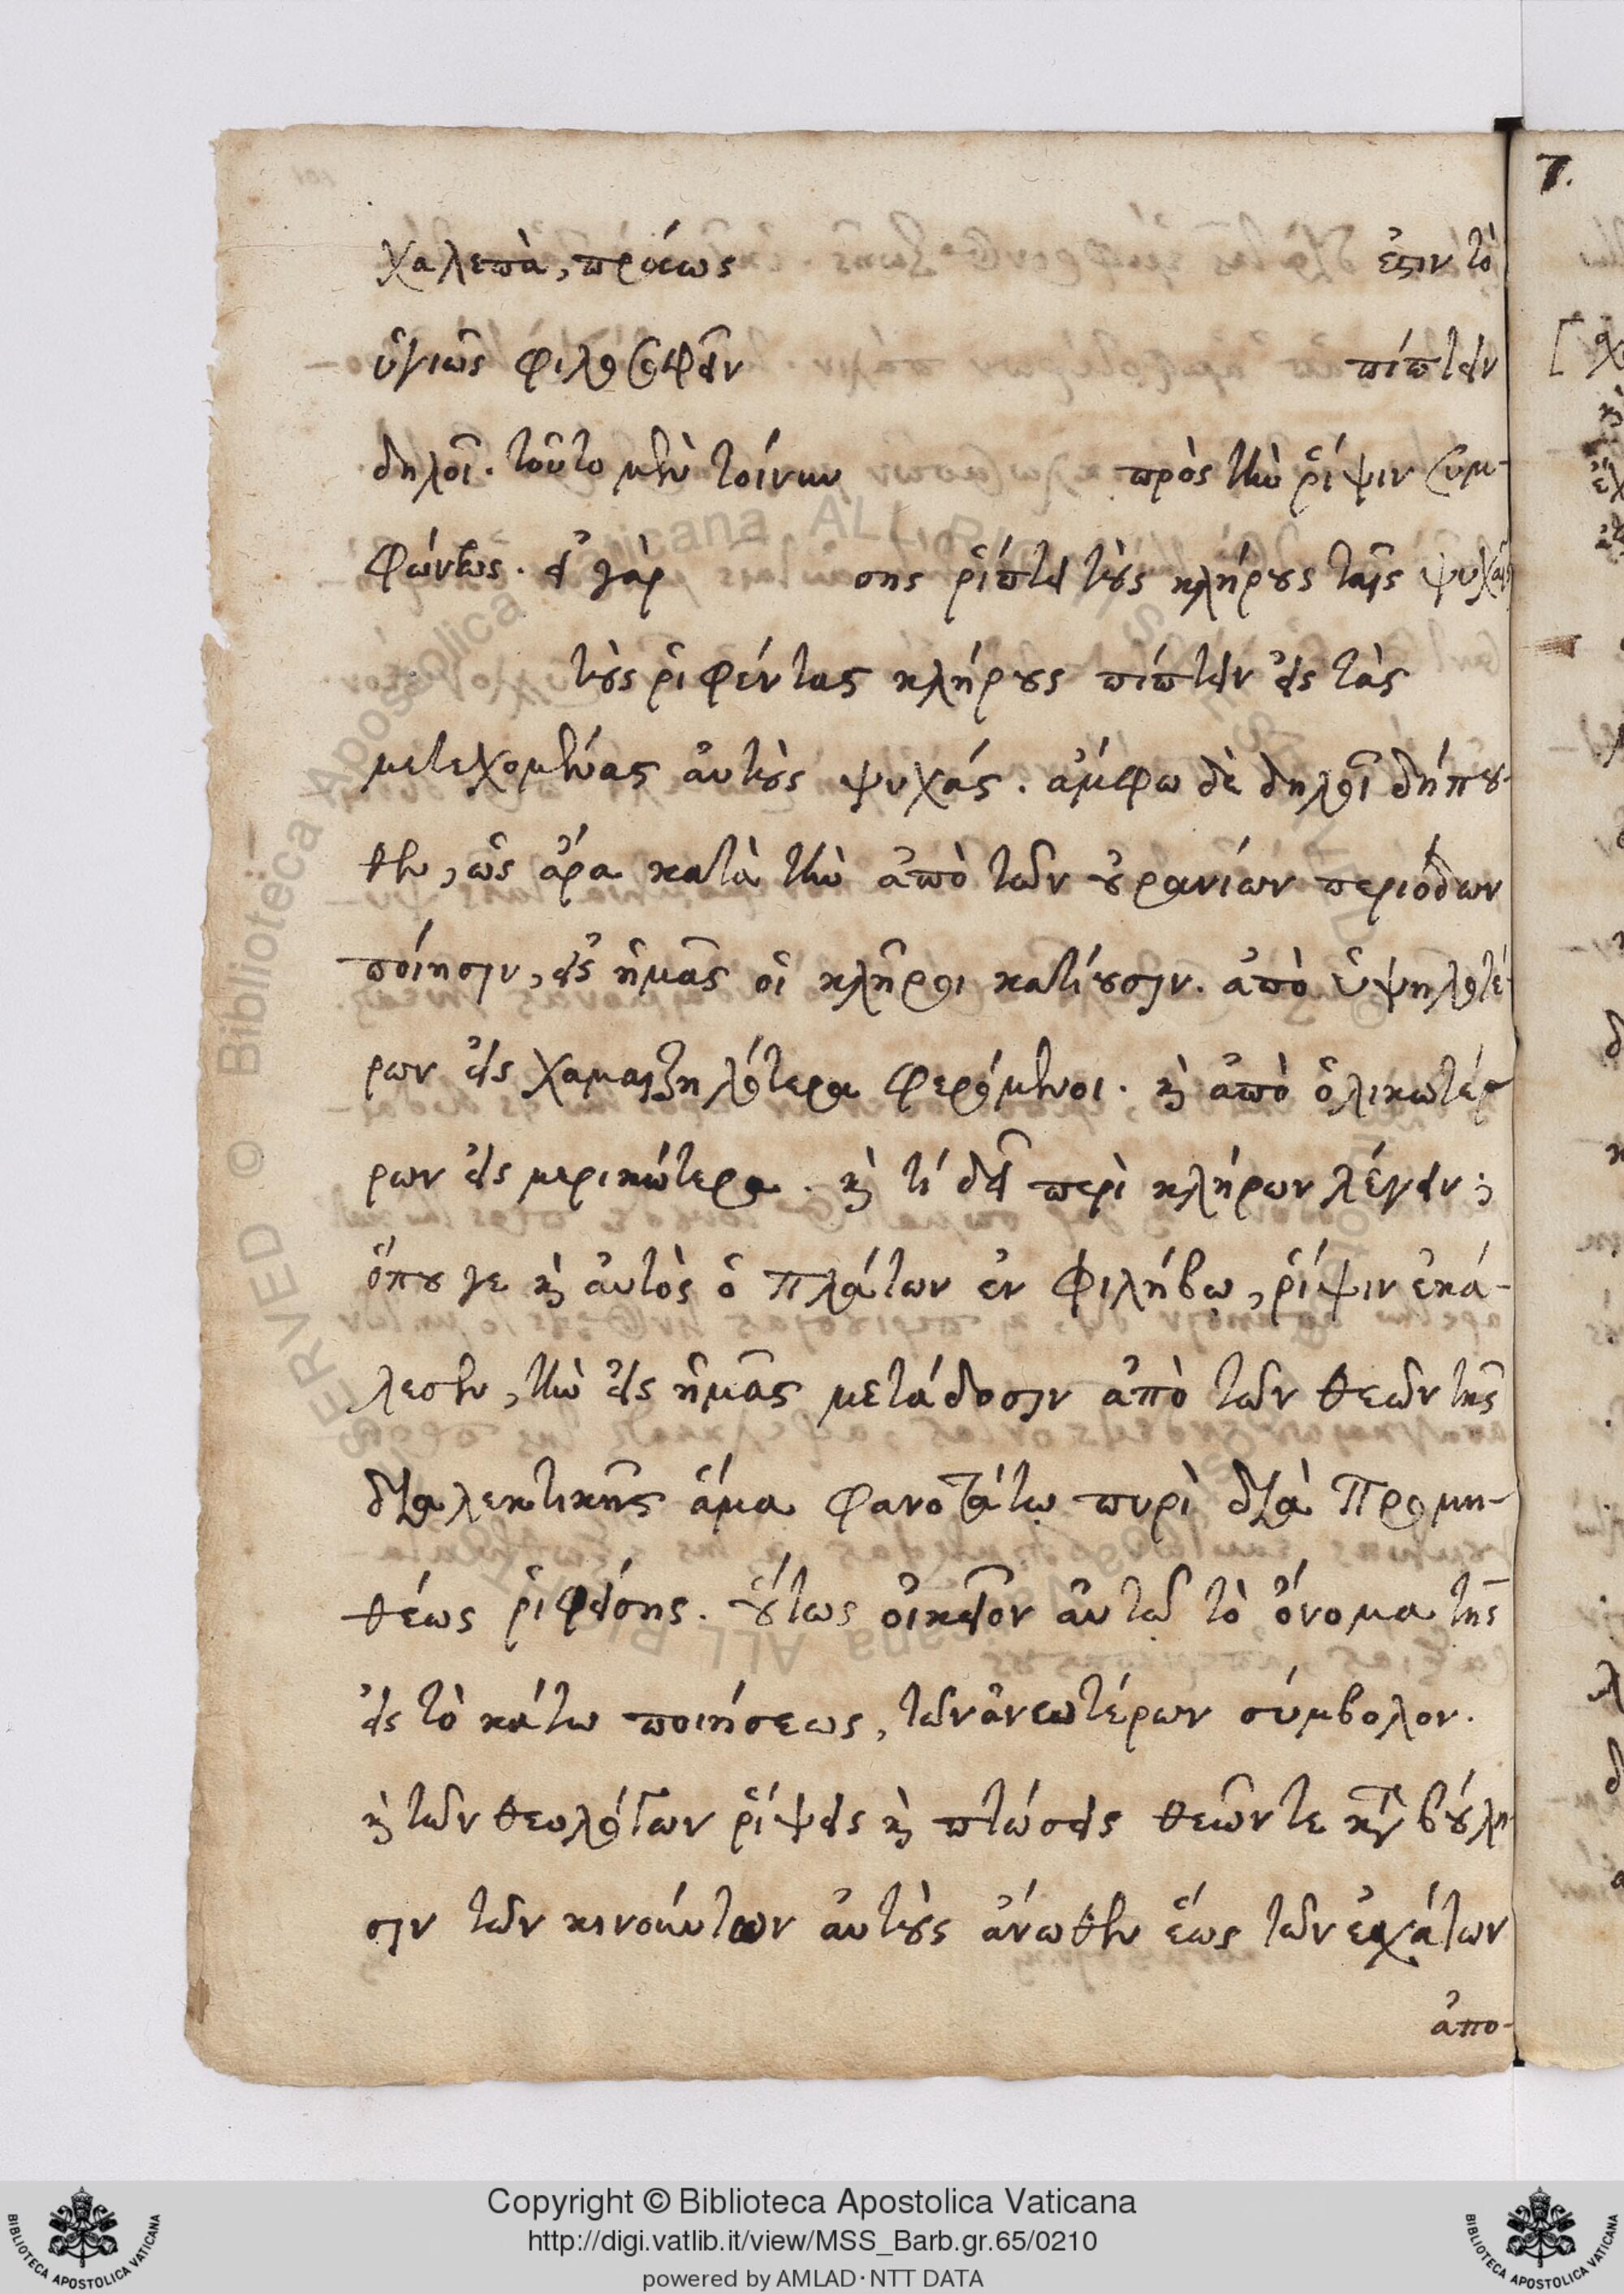 χαλεπὰ, πράως ἐστιν τὸ
ὑγιῶς φιλοσοφεῖν πίπτειν
δηλοῖ. τοῦτο μὲν τοίνυν πρὸς τὴν ῥίψιν συμ-
φώνως. εἰ γὰρ σης ῥίπτει τοὺς κλήρους ταῖς ψυχαῖς
τοὺς ῥιφέντας κλήρους πίπτειν εἰς τὰς
μετεχομένας αὐτοὺς ψυχάς. ἄμφω δὲ δηλοῖ δήπου-
θεν, ὡς ἄρα κατὰ τὴν ἀπὸ τῶν οὐρανίων περιόδων
ποίησιν, εἰς ἡμᾶς οἱ κλῆροι κατίουσιν. ἀπὸ ὑψηλοτέ-
ρων εἰς χαμαιζηλότερα φερόμενοι. καὶ ἀπὸ ὁλικωτέ-
ρων εἰς μερικώτερα. καὶ τί δεῖ περὶ κλήρων λέγειν;
ὅπου γε καὶ αὐτὸς ὁ Πλάτων ἐν Φιλήβῳ, ῥίψιν ἐκά-
λεσεν, τὴν εἰς ἡμᾶς μετάδοσιν ἀπὸ τῶν θεῶν τῆς
διαλεκτικῆς ἅμα φανοτάτῳ πυρὶ διὰ Προμη-
θέως ῥιφείσης. οὕτως οἰκεῖον αὐτῷ τὸ ὄνομα τῆς
εἰς τὸ κάτω ποιήσεως, τῶν ἀνωτέρων σύμβολον.
καὶ τῶν θεολόγων ῥίψεις καὶ πτώσεις θεῶν τε βούλη
σιν τῶν κινούντων αὐτοὺς ἄνωθεν ἕως τῶν ἐσχάτων
ἀπο-
7.
Copyright © Biblioteca Apostolica Vaticana
http://digi.vatlib.it/view/MSS_Barb.gr.65/0210
powered by AMLAD·NTT DATA